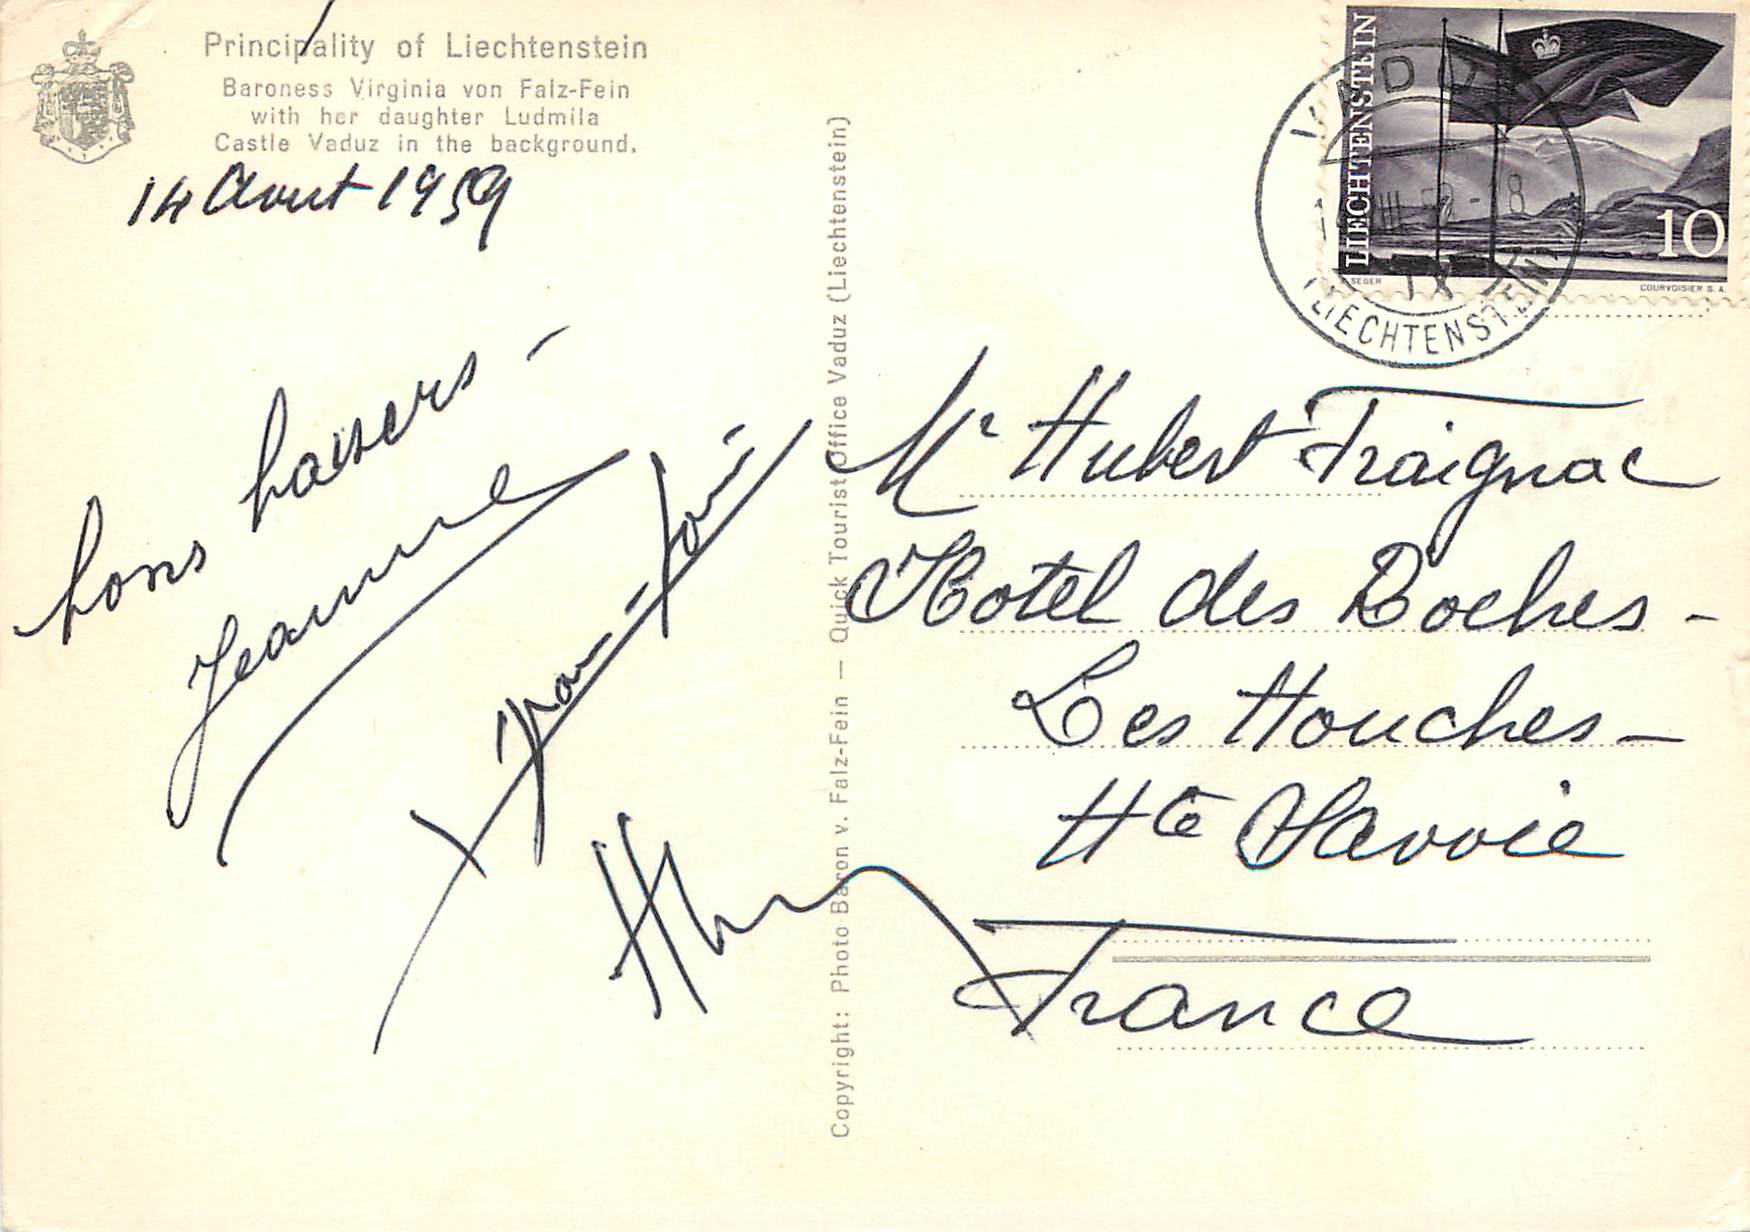 Principality of Liechtenstein
Baroness Virginia von Falz-Fein
with her daughter Ludmila
Castle Vaduz in the background.
14 Aout 1959
bons baisers -
Jeanne
Copyright: Photo Baron v. Falz-Fein — Quick Tourist Office Vaduz (Liechtenstein)
LIECHTENSTEIN
10
SEGER
COURVOISIER S.A.
VADUZ
(LIECHTENSTEIN)
Mr Hubert Fraignac
Hotel des Roches -
Les Houches -
Hte Savoie
France